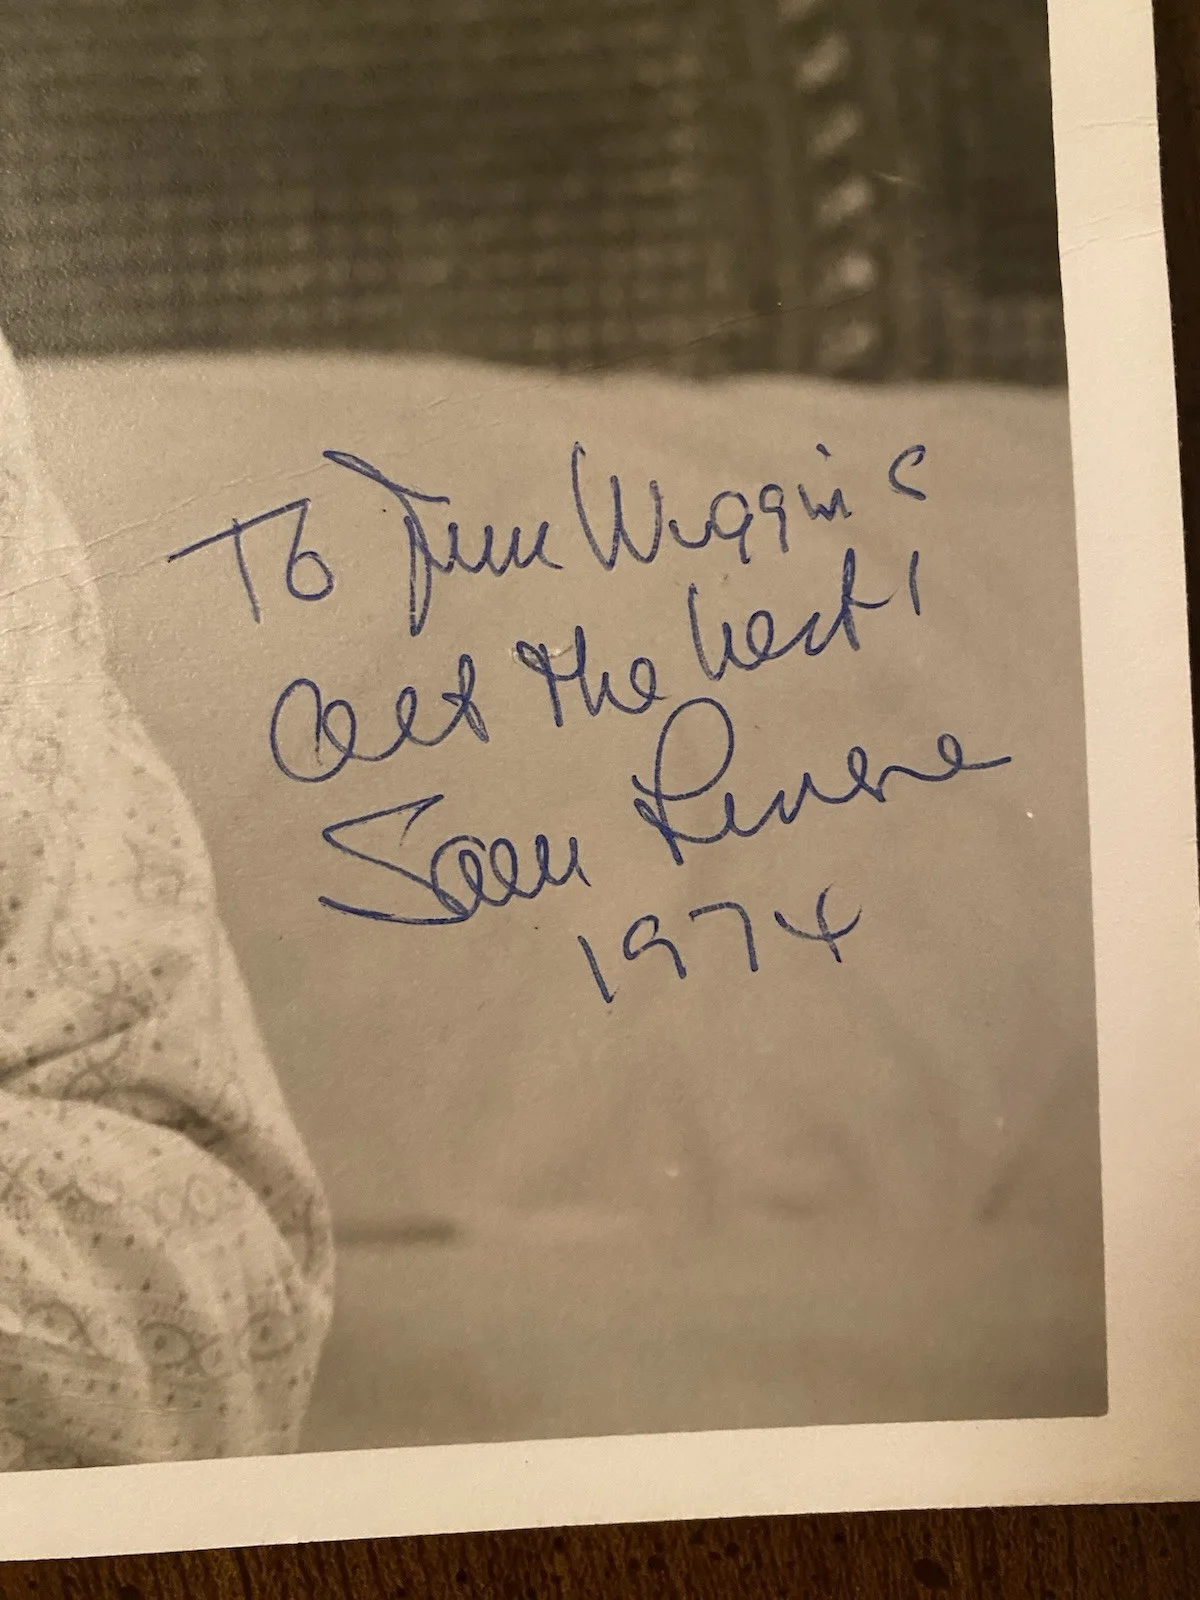 To Jim Wiggins
All the best!
Sam Levene
1974